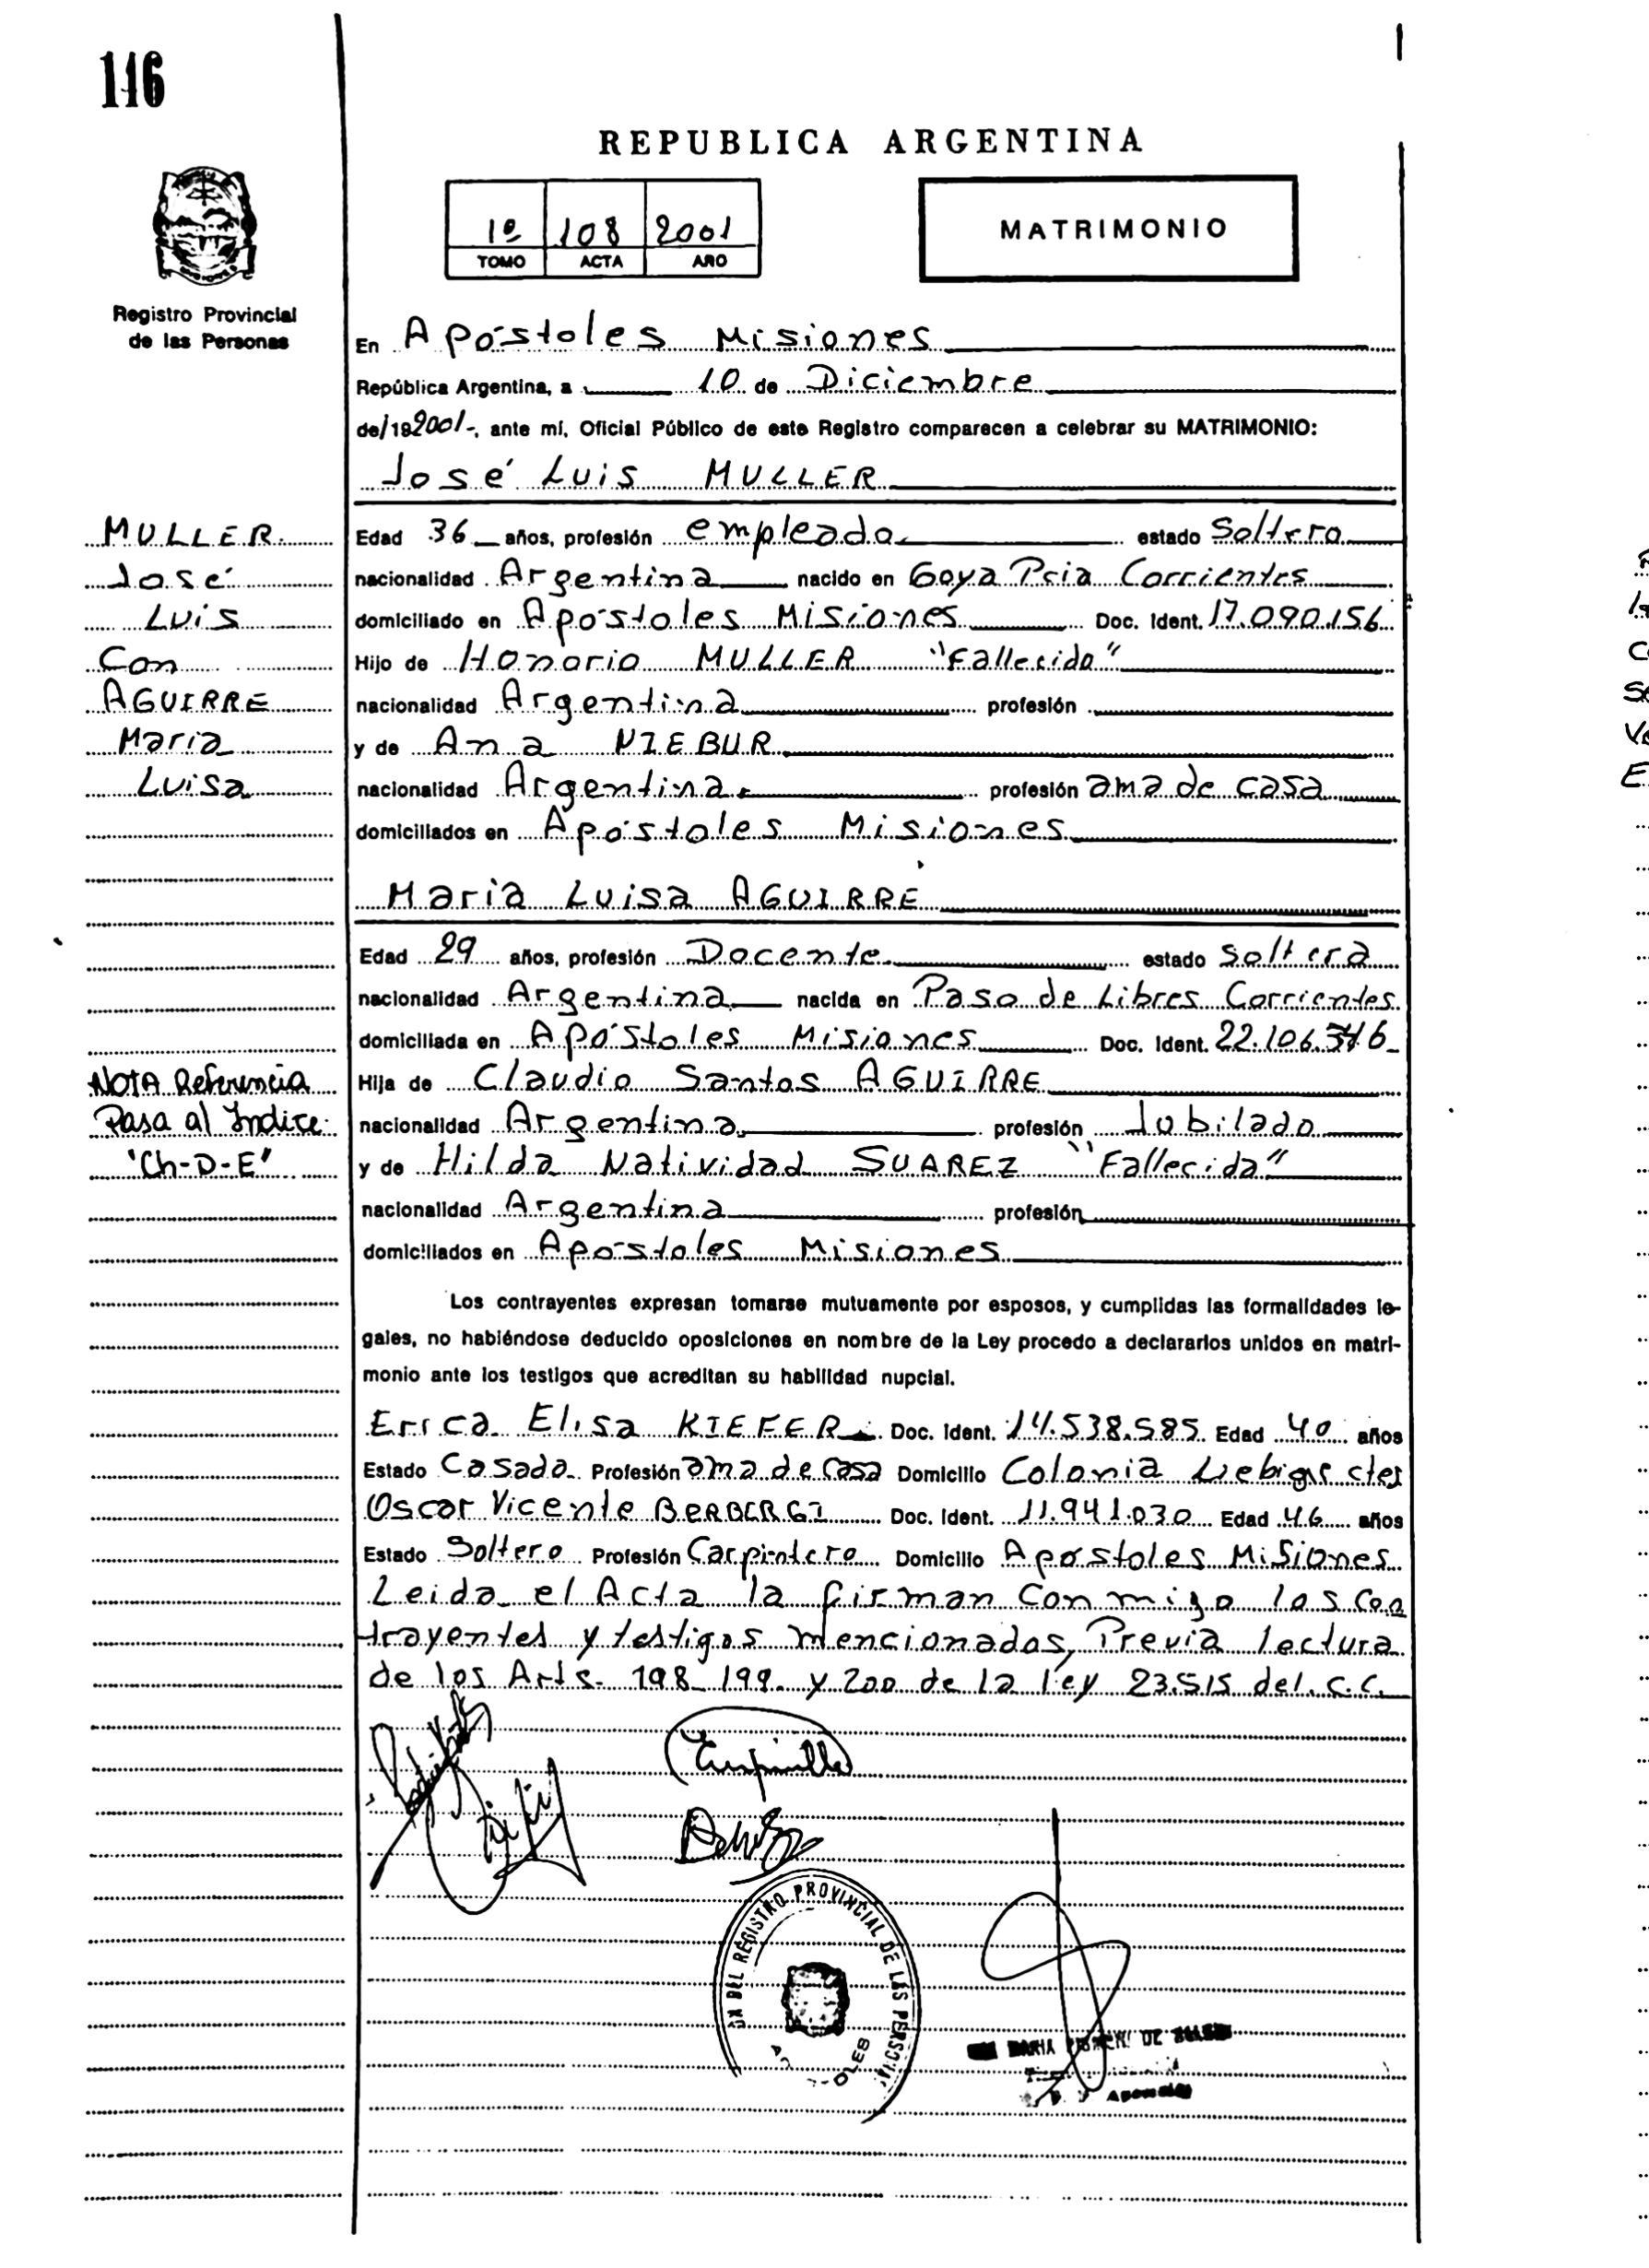 116
REPUBLICA ARGENTINA
1º 108 2001
TOMO ACTA AÑO
MATRIMONIO
Registro Provincial
de las Personas
En Apóstoles Misiones
República Argentina, a 10 de Diciembre
de/19 2001-, ante mí, Oficial Público de este Registro comparecen a celebrar su MATRIMONIO:
José Luis MULLER
MULLER
José
Luis
Con
AGUIRRE
Maria
Luisa
Edad 36 años, profesión empleado estado Soltero
nacionalidad Argentina nacido en Goya Pcia Corrientes
domiciliado en Apóstoles Misiones Doc. Ident. 17.090.156
Hijo de Honorio MULLER "Fallecido"
nacionalidad Argentina profesión
y de Ana NIEBUR
nacionalidad Argentina profesión ama de casa
domiciliados en Apóstoles Misiones
Maria Luisa AGUIRRE
Edad 29 años, profesión Docente estado Soltera
nacionalidad Argentina nacida en Paso de Libres Corrientes
domiciliada en Apóstoles Misiones Doc. Ident.
Hija de Claudio Santos AGUIRRE
nacionalidad Argentina profesión Jubilado
y de Hilda Natividad SUAREZ "Fallecida"
nacionalidad Argentina profesión
domiciliados en Apóstoles Misiones
NOTA Referencia
Pasa al Indice
"Ch-D-E"
Los contrayentes expresan tomarse mutuamente por esposos, y cumplidas las formalidades le-
gales, no habiéndose deducido oposiciones en nombre de la Ley procedo a declararlos unidos en matri-
monio ante los testigos que acreditan su habilidad nupcial.
Erica Elisa KIEFER Doc. Ident. 14.538.585 Edad 40 años
Estado Casada Profesión ama de casa Domicilio Colonia Liebigue ctes
Oscar Vicente Doc. Ident. 11.941.030 Edad 46 años
Estado Soltero Profesión Carpintero Domicilio Apostoles Misiones
Leida el Acta la firman Conmigo los Con
trayentes y testigos mencionados, Previa lectura
de los Arts. 198 199 y 200 de la ley 23.515 del C.C.
DEL REGISTRO PROVINCIAL DE LAS PERSONAS
MARIA DE